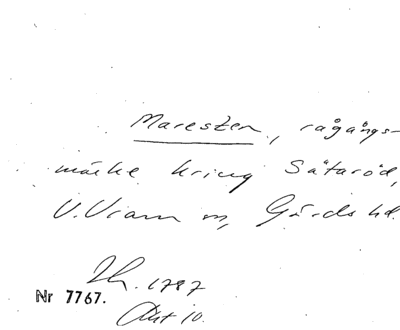 Maresten, rågångs-
märke kring Sätaröd,
V. Vram sn, Gärds hd.
1787
Nr 7767.
Akt 10.